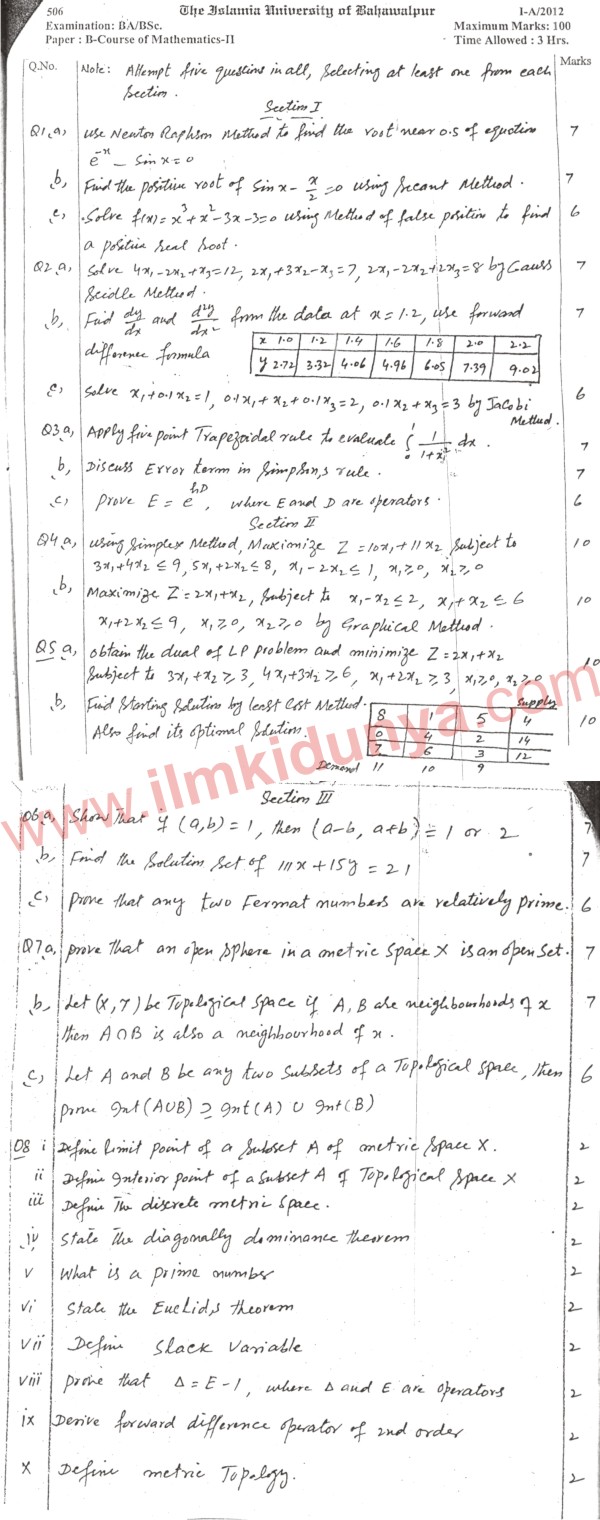 506 The Islamia University of Bahawalpur I-A/2012
Examination: BA/BSc. Maximum Marks: 100
Paper : B-Course of Mathematics-II Time Allowed : 3 Hrs.
Q.No. Note: Attempt five questions in all, Selecting at least one from each Marks
Section.
Section I
Q1,a, Use Newton Raphson Method to find the root near 0.5 of equation 7
e^-x - Sin x = 0
b, Find the positive root of Sin x - x/2 = 0 using Secant Method. 7
c, Solve f(x) = x³ + x² - 3x - 3 = 0 using Method of false position to find 6
a positive real root.
Q2,a, Solve 4x₁ - 2x₂ + x₃ = 12, 2x₁ + 3x₂ - x₃ = 7, 2x₁ - 2x₂ + 2x₃ = 8 by Gauss 7
Seidle Method.
b, Find dy/dx and d²y/dx² from the data at x = 1.2, use forward 7
difference formula
x 1.0 1.2 1.4 1.6 1.8 2.0 2.2
y 2.72 3.32 4.06 4.96 6.05 7.39 9.02
c, Solve x₁ + 0.1x₂ = 1, 0.1x₁ + x₂ + 0.1x₃ = 2, 0.1x₂ + x₃ = 3 by Jacobi 6
Method.
Q3,a, Apply five point Trapezoidal rule to evaluate ∫₀¹ 1/(1+x²) dx. 7
b, Discuss Error term in Simpson,s rule. 7
c, Prove E = e^hD, where E and D are operators. 6
Section II
Q4,a, using Simplex Method, Maximize Z = 10x₁ + 11x₂ Subject to 10
3x₁ + 4x₂ ≤ 9, 5x₁ + 2x₂ ≤ 8, x₁ - 2x₂ ≤ 1, x₁ ≥ 0, x₂ ≥ 0
b, Maximize Z = 2x₁ + x₂, Subject to x₁ - x₂ ≤ 2, x₁ + x₂ ≤ 6 10
x₁ + 2x₂ ≤ 9, x₁ ≥ 0, x₂ ≥ 0 by Graphical Method.
Q5,a, obtain the dual of LP problem and minimize Z = 2x₁ + x₂
Subject to 3x₁ + x₂ ≥ 3, 4x₁ + 3x₂ ≥ 6, x₁ + 2x₂ ≥ 3, x₁ ≥ 0, x₂ ≥ 0 10
b, Find Starting Solution by least Cost Method. Supply
8 1 5 4 10
Also find its optimal Solution. 0 4 2 14
7 6 3 12
Demand 11 10 9
www.ilmkidunya.com
Section III
Q6,a, Show that if (a,b) = 1, then (a-b, a+b) = 1 or 2 7
b, Find the Solution set of 111x + 15y = 21 7
c, Prove that any two Fermat numbers are relatively prime. 6
Q7,a, prove that an open sphere in a metric space X is an open set. 7
b, Let (X, τ) be Topological Space if A, B are neighbourhoods of x 7
then A ∩ B is also a neighbourhood of x.
c, Let A and B be any two Subsets of a Topological space, then 6
prove Int(A∪B) ⊇ Int(A) ∪ Int(B)
Q8 i Define limit point of a Subset A of metric space X. 2
ii Define Interior point of a Subset A of Topological Space X 2
iii Define The discrete metric Space. 2
iv State the diagonally dominance theorem 2
v What is a prime number 2
vi State the Euclid,s theorem 2
vii Define Slack Variable 2
viii prove that Δ = E - 1, where Δ and E are operators 2
ix Derive forward difference operator of 2nd order 2
x Define metric Topology. 2